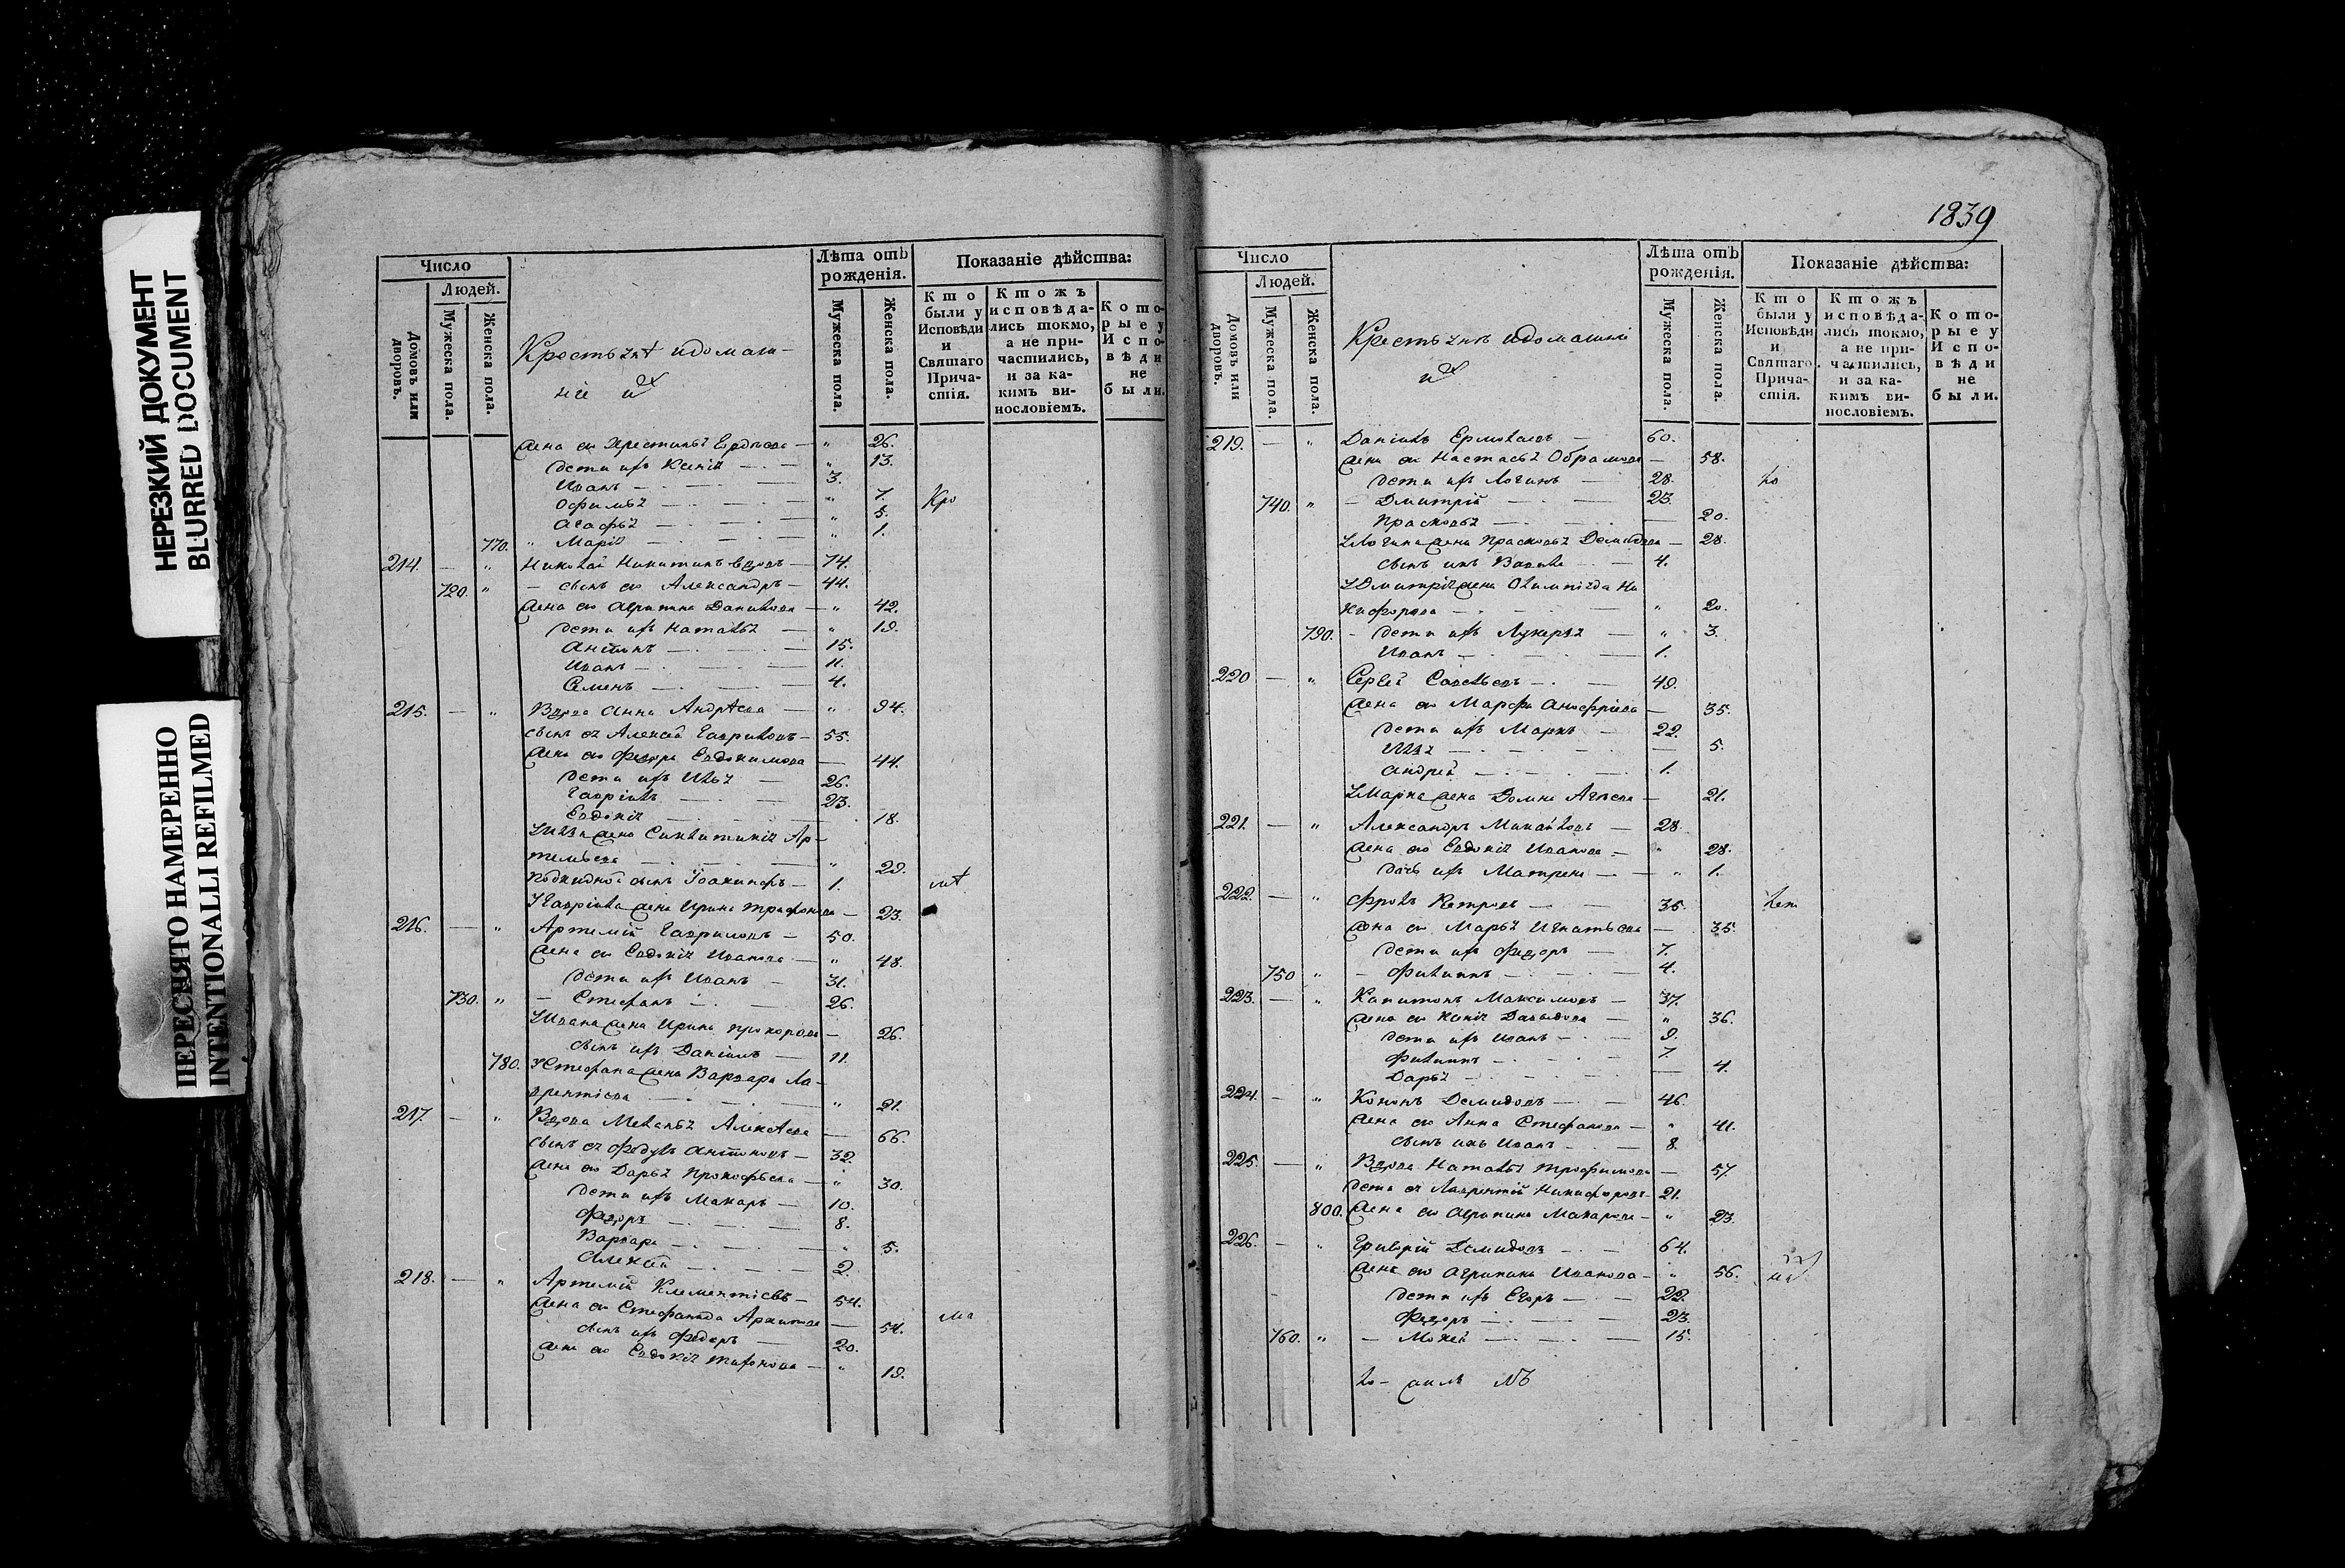 НЕРЕЗКИЙ ДОКУМЕНТ
BLURRED DOCUMENT
ПЕРЕСНЯТО НАМЕРЕННО
INTENTIONALLI REFILMED
Число
Людей.
Домовъ или дворовъ.
Мужеска пола.
Женска пола.
Крестьянѣ идомаш-
ніе ихъ
Лѣта отъ рожденія.
Мужеска пола.
Женска пола.
Показаніе дѣйства:
Кто были у Исповѣди и Святаго Прича-стія.
Ктожъ исповѣда-лись токмо, а не при-частились, и за ка-кимъ ви-нословіемъ.
Кото-рые у Испо-вѣди не были.
жена его Христинья — „ 26.
дети ихъ Ксенія — „ 13.
Иванъ — 3.
Офимья — „ 7. Кре
Агафья — „ 5.
770. „ Марія — „ 1.
214. — „ Николай Никитинъ вдовъ — 74.
720. „ — сынъ его Александръ — 44.
жена его Агрипина Данилова — „ 42.
дети ихъ Наталья — „ 19.
Антонъ — 15.
Иванъ — 11.
Семенъ — 4.
215. — „ Вдова Анна Андрѣева — „ 94.
сынъ ея Алексей Гавриловъ — 55.
жена его Федора Евдокимова — 44.
дети ихъ Илья — 26.
Гавріилъ — 23.
Евдокія — 18.
Ильи жена Синклитикія Ар-
темьева — „ 29.
Подкидной сынъ Іоакинфъ — 1. стѣ
У Гавріила жена Ирина Трифонова — 23.
216. — „ Артемій Гавриловъ — 50.
жена его Евдокія Иванова — „ 48.
дети ихъ Иванъ — 31.
730. „ — Стефанъ — 26.
У Ивана жена Ирина Прохорова — 26.
сынъ ихъ Даніилъ — 11.
780. У Стефана жена Варвара Ла-
врентіева — „ 21.
217. — „ Вдова Меланья Алексѣева — 66.
сынъ ея Федулъ Антоновъ — 32.
жена его Дарья Прокофьева — „ 30.
дети ихъ Макаръ — 10.
Федоръ — 8.
Варвара — „ 5.
Алексей — 2.
218. — „ Артемій Клементіевъ — 54.
жена его Стефанида Архипова — 54. ма
сынъ ихъ Федоръ — 20.
жена его Евдокія — „ 19.
1839
Число
Людей.
Домовъ или дворовъ.
Мужеска пола.
Женска пола.
Крестьянѣ идомашніе
ихъ
Лѣта отъ рожденія.
Мужеска пола.
Женска пола.
Показаніе дѣйства:
Кто были у Исповѣди и Святаго Прича-стія.
Ктожъ исповѣда-лись токмо, а не при-частились, и за ка-кимъ ви-нословіемъ.
Кото-рые у Испо-вѣди не были.
219. — „ Даніилъ Ермолаевъ — 60.
жена его Настасья Обрамова — 58.
дети ихъ Логинъ — 28. по
740. „ — Дмитрій — 23.
Прасковья — 20.
У Логина жена Прасковья Демидова — 28.
сынъ ихъ — 4.
У Дмитрія жена Олимпіяда Ни
кифорова — „ 20.
790. — дети ихъ Лукерья — „ 3.
Иванъ — 1.
220 — „ Сергей Савельевъ — 49.
жена его Марфа Анофріева — 35.
дети ихъ Маркъ — 22.
— 5.
Андрей — 1.
У Марка жена Домна — 21.
221. — „ Александръ Михайловъ — 28.
жена его Евдокія Иванова — „ 28.
дочь ихъ Матрена — „ 1.
222. — „ Фролъ Петровъ — 35.
жена его Марья Игнатьева — 35.
дети ихъ Федоръ — 7.
750 „ — Филиппъ — 4.
223. — „ Капитонъ Максимовъ — 37.
жена его Давыдова — „ 36.
дети ихъ Иванъ — 9.
Филиппъ — 7.
Дарья — 4.
224. — „ Кононъ Демидовъ — 46.
жена его Анна Стефанова — „ 41.
сынъ ихъ Иванъ — 8.
225. — „ Вдова Наталья Трофимова — 57.
дети ея Лаврентій Никифоровъ — 21.
800. жена его Агрипина Макарова — „ 23.
226. — „ Григорій Демидовъ — 64.
жена его Агрипина Иванова — „ 56.
дети ихъ Егоръ — 22.
Федоръ — 23.
760. „ — Мокей — 15.